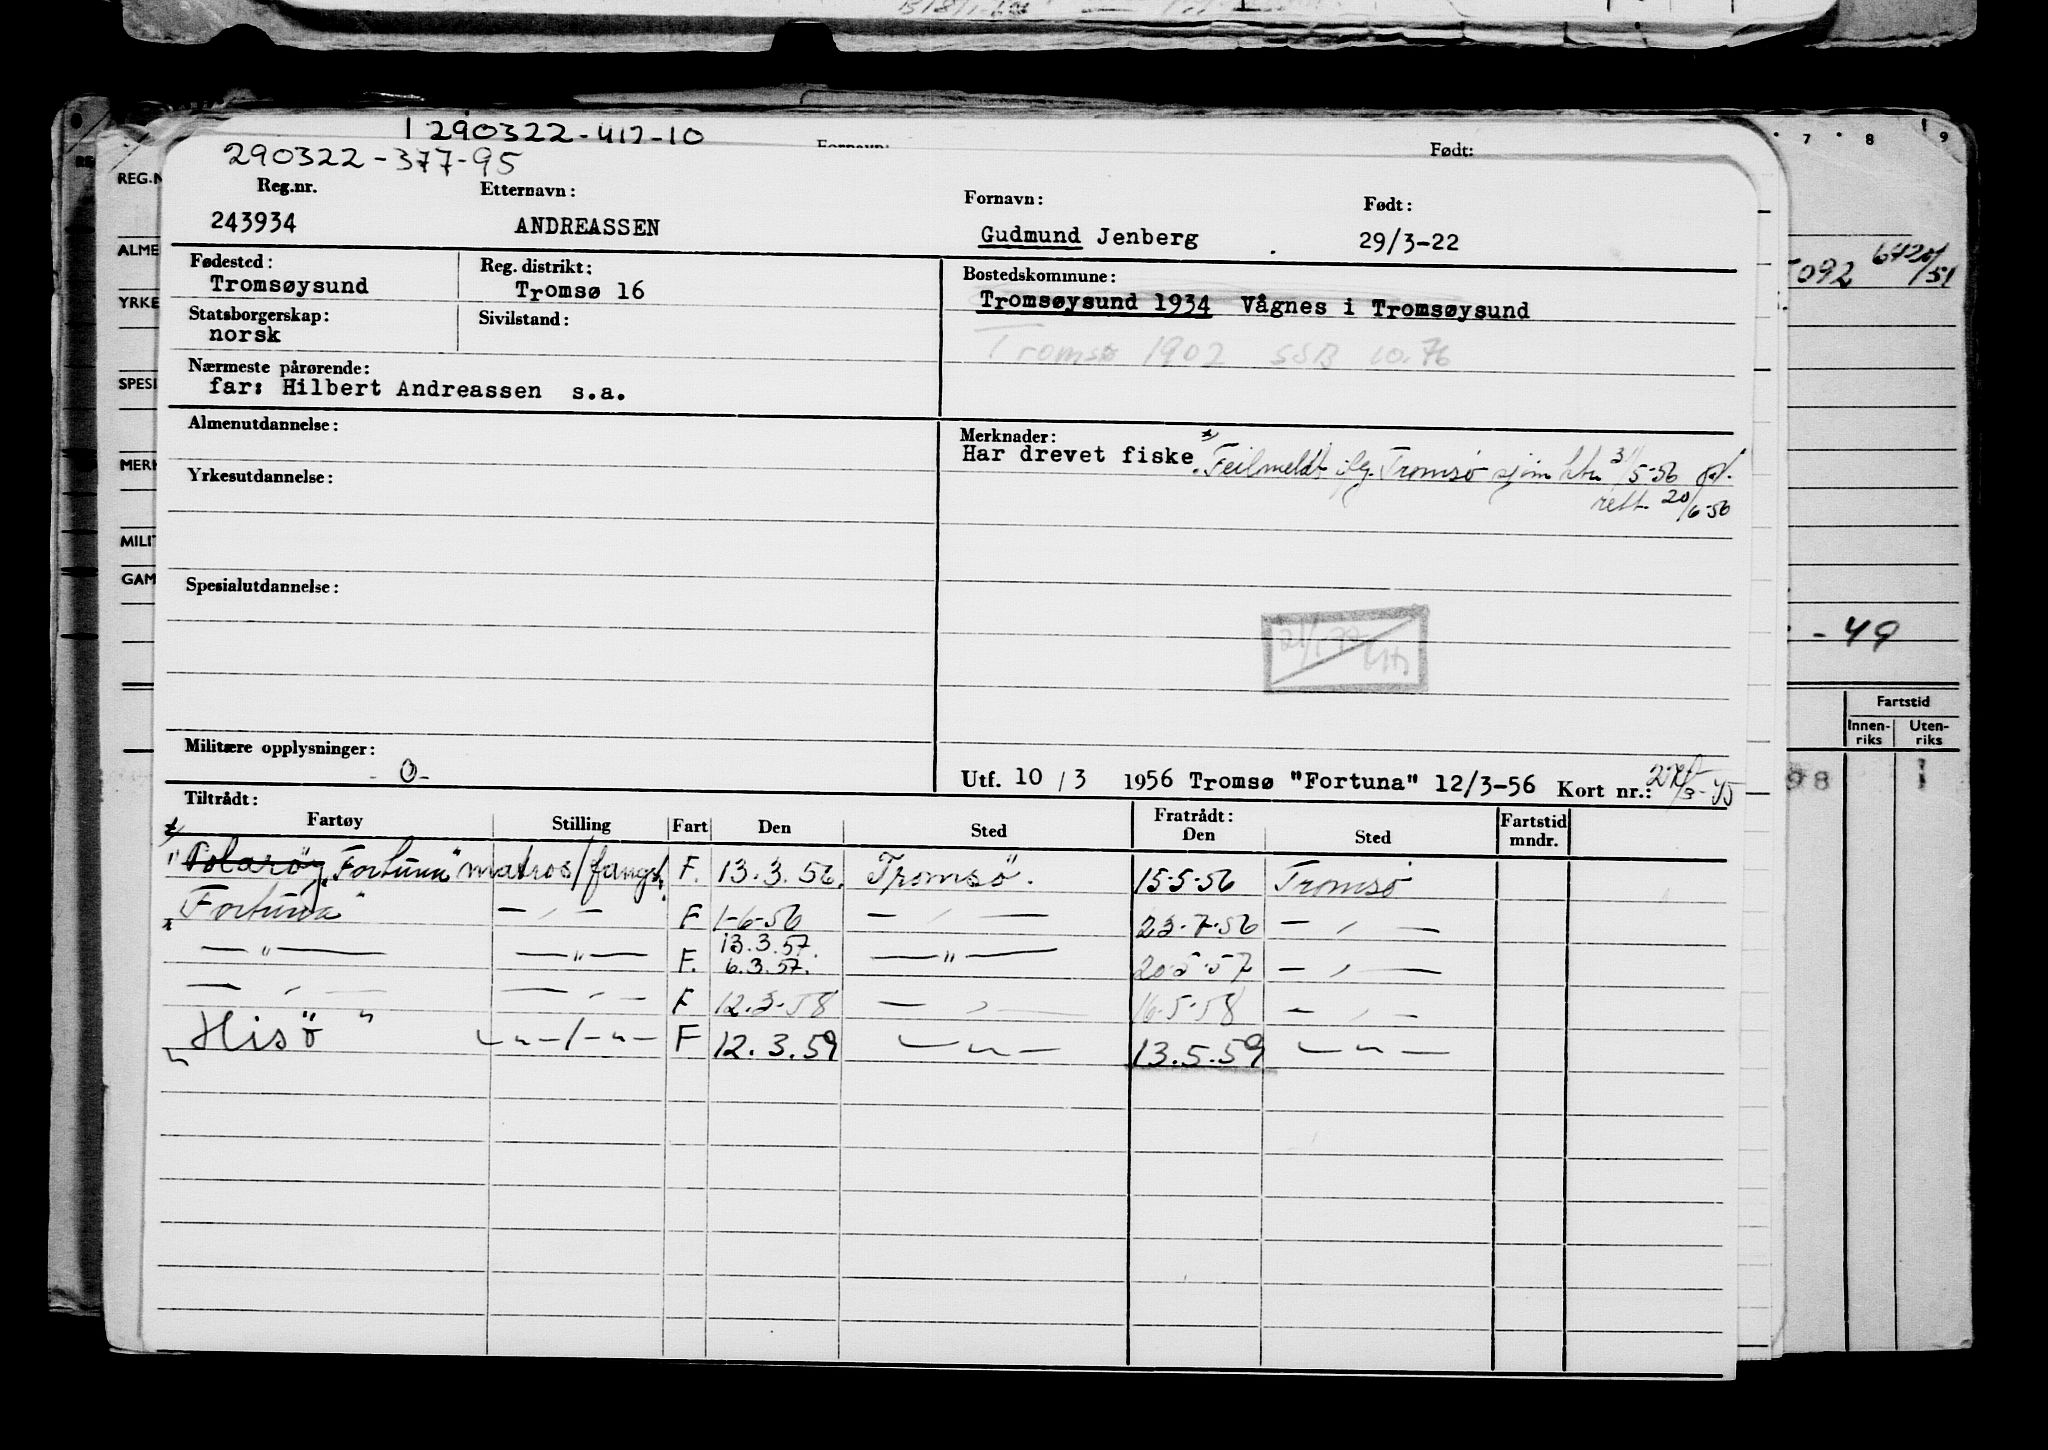 1 290322-417-10
Født:
290322-377-95
Reg.nr. Etternavn: Fornavn: Født:
243934 ANDREASSEN Gudmund Jenberg 29/3-22
Fødested: Reg. distrikt: Bostedskommune:
Tromsøysund Tromsø 16 Tromsøysund 1934 Vågnes i Tromsøysund
Statsborgerskap: Sivilstand:
norsk
Tromsø 1902 SSB 10.76
Nærmeste pårørende:
far: Hilbert Andreassen s.a.
Almenutdannelse: Merknader:
Har drevet fiske. Feilmeldt iflg. Tromsø sjøm 31/5-56
rett. 20/6-56
Yrkesutdannelse:
Spesialutdannelse:
Militære opplysninger:
-0-
Utf. 10/3 1956 Tromsø "Fortuna" 12/3-56 Kort nr.:
Tiltrådt: Fratrådt:
Fartøy Stilling Fart Den Sted Den Sted Fartstid mndr.
"Polarøy Fortuna" matros/fangst. F. 13.3.56. Tromsö. 15-5-56 Tromsö
Fortuna" — " — F 1-6-56 — " — 23-7-56 — " —
— " — — " — F. 13.3.57. 6.3.57. — " — 20-5-57 — " —
— " — — " — F 12.3-58 — " — 16-5-58 — " —
"Hisö" — " — / — " — F 12.3.59 — " — 13.5.59 — " —
REG.N
ALME
YRKE
SPESI
MERK
MILIT
GAM
7 8 9
-49
Fartstid
Innen-riks Uten-riks
98 1